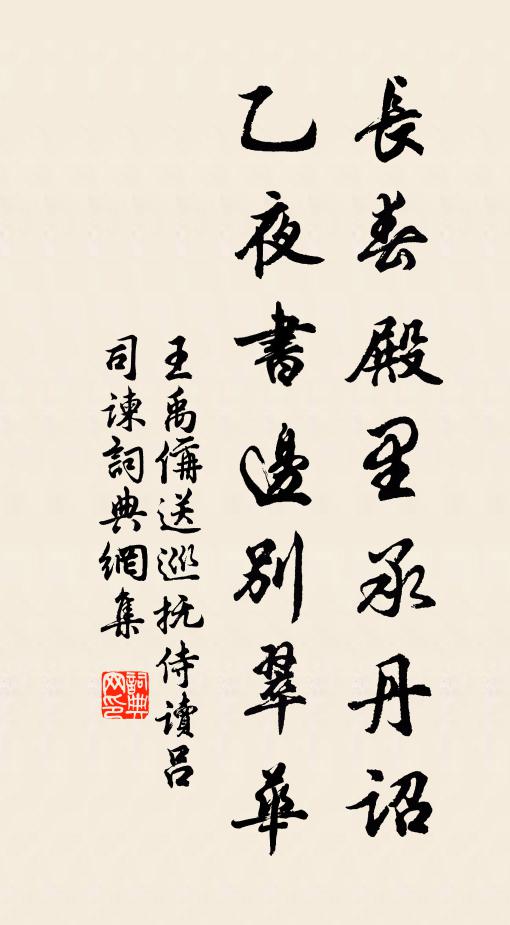 長春殿里承丹詔
乙夜書邊別翠華
王禹偁送巡抚侍讀呂
司諫詞典網集
詞典网印